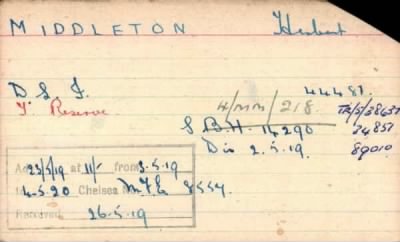 MIDDLETON Herbert
D L I. 44481.
T. Reserve 4/MM/218. TR/5/38637
S B H. 14290 34851
Dis 2.5.19. 89010
23/5/19 at 11/- from 3.5.19
4.5.20 Chelsea No. 8554.
26.5.19